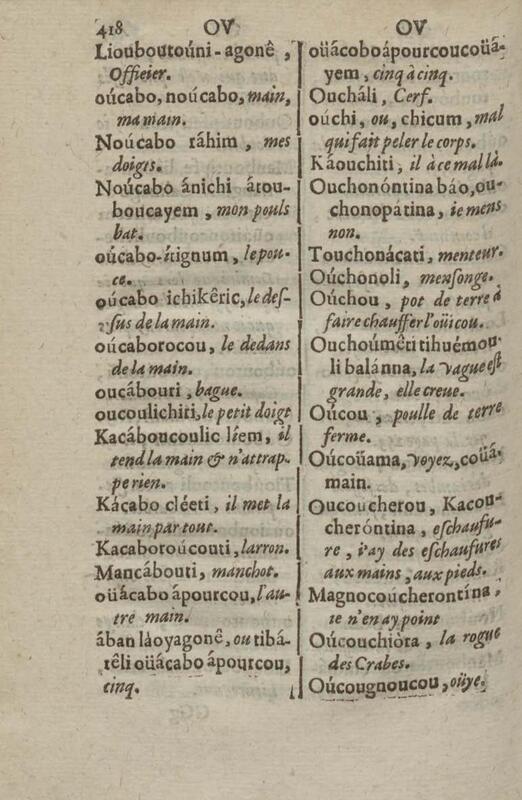 418 OV OV
Liouboutoúni-agonê,
Officier.
oúcabo, noúcabo, main,
ma main.
Noúcabo ráhim, mes
doigts.
Noúcabo ánichi átou-
boucayem, mon pouls
bat.
oúcabo-ítignum, le pou-
ce.
oúcabo ichikêric, le des-
sus de la main.
oúcaborocou, le dedans
de la main.
oucábouti, bague.
oucoulichiti, le petit doigt
Kacáboucoulic líem, il
tend la main & n'attrap-
pe rien.
Kácabo cléeti, il met la
main par tout.
Kacaboroúcouti, larron.
Mancábouti, manchot.
oüácabo ápourcou, l'au-
tre main.
ában làoyagonê, ou tibá-
têli oüácabo ápourcou,
cinq.
oüácoboápourcoucoüá-
yem, cinq à cinq.
Oucháli, Cerf.
oúchi, ou, chicum, mal
qui fait peler le corps.
Káouchiti, il à ce mal là.
Ouchonóntina báo, ou-
chonopátina, ie mens
non.
Touchonácati, menteur.
Oúchonoli, mensonge.
Oúchou, pot de terre à
faire chauffer l'oüicou.
Ouchoumêtitihuémou-
li balánna, la vague est
grande, elle creue.
Oúcou, poulle de terre
ferme.
Oúcoüama, voyez, coüá-
main.
Oucoucherou, Kacou-
cheróntina, eschaufu-
re, i'ay des eschaufures
aux mains, aux pieds.
Magnocoúcherontina,
ie n'en ay point
Oúcouchiòra, la rogue
des Crabes.
Oúcougnoucou, oüye.